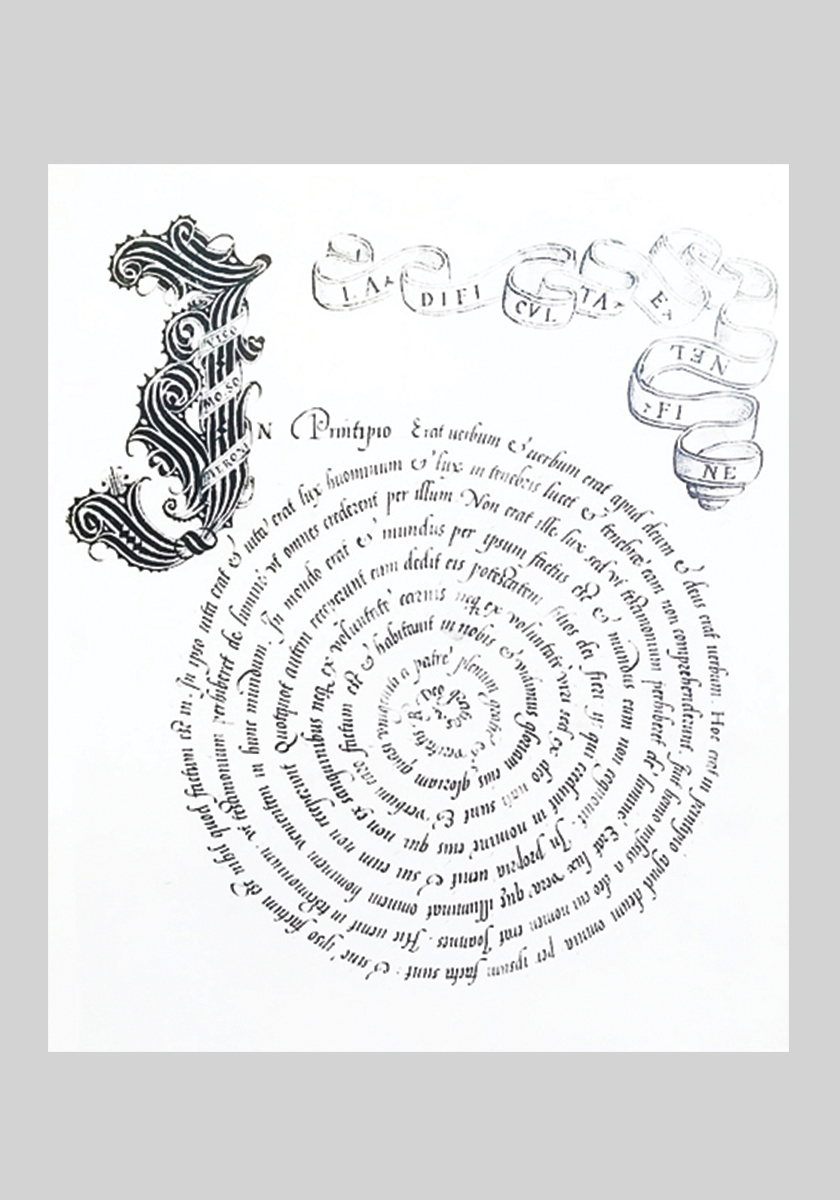 LA DIFI CVL TA E NEL FI NE
VICO
MO.SO
HIERONI
IN Printipio Erat uerbum & uerbum erat apud deum & deus erat uerbum. Hoc erat in printipio apud deum omnia per ipsum facta sunt: & sine ipso factum est nihil quod factum est in. In ipso uita erat & uita erat lux huominum & lux in tenebris lucet & tenebrae eam non comprehenderunt. fuit homo missus a deo cui nomen erat Joannes. Hic uenit in testimonium. vt testimonium perhiberet de lumine vt omnes crederent per illum. Non erat ille lux sed vt testimonium perhiberet de lumine. Erat lux vera quę illuminat omnem hominem venientem in hunc mundum. In mondo erat & mundus per ipsum factus est & mundus eum non cognouit. In propria uenit & sui eum non receperunt Quotquot autem receperunt eum dedit eis potestatem filios dei fieri ijs qui credunt in nomine eius qui non ex sanguinibus neq ex voluntate carnis neq ex voluntate viri sed ex deo nati sunt Et verbum caro factum est & habitauit in nobis & vidimus gloriam eius gloriam quasi vnigeniti a patre plenum gratie et veritatis. Deo